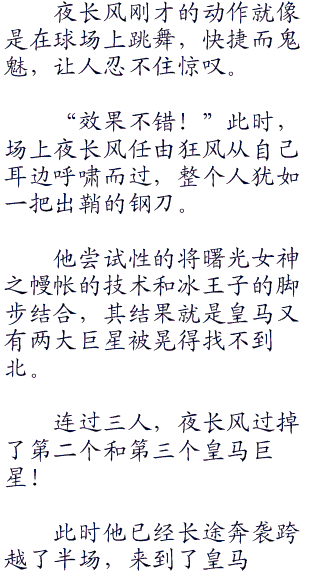 夜长风刚才的动作就像
是在球场上跳舞，快捷而鬼
魅，让人忍不住惊叹。
“效果不错！”此时，
场上夜长风任由狂风从自己
耳边呼啸而过，整个人犹如
一把出鞘的钢刀。
他尝试性的将曙光女神
之幔帐的技术和冰王子的脚
步结合，其结果就是皇马又
有两大巨星被晃得找不到
北。
连过三人，夜长风过掉
了第二个和第三个皇马巨
星！
此时他已经长途奔袭跨
越了半场，来到了皇马